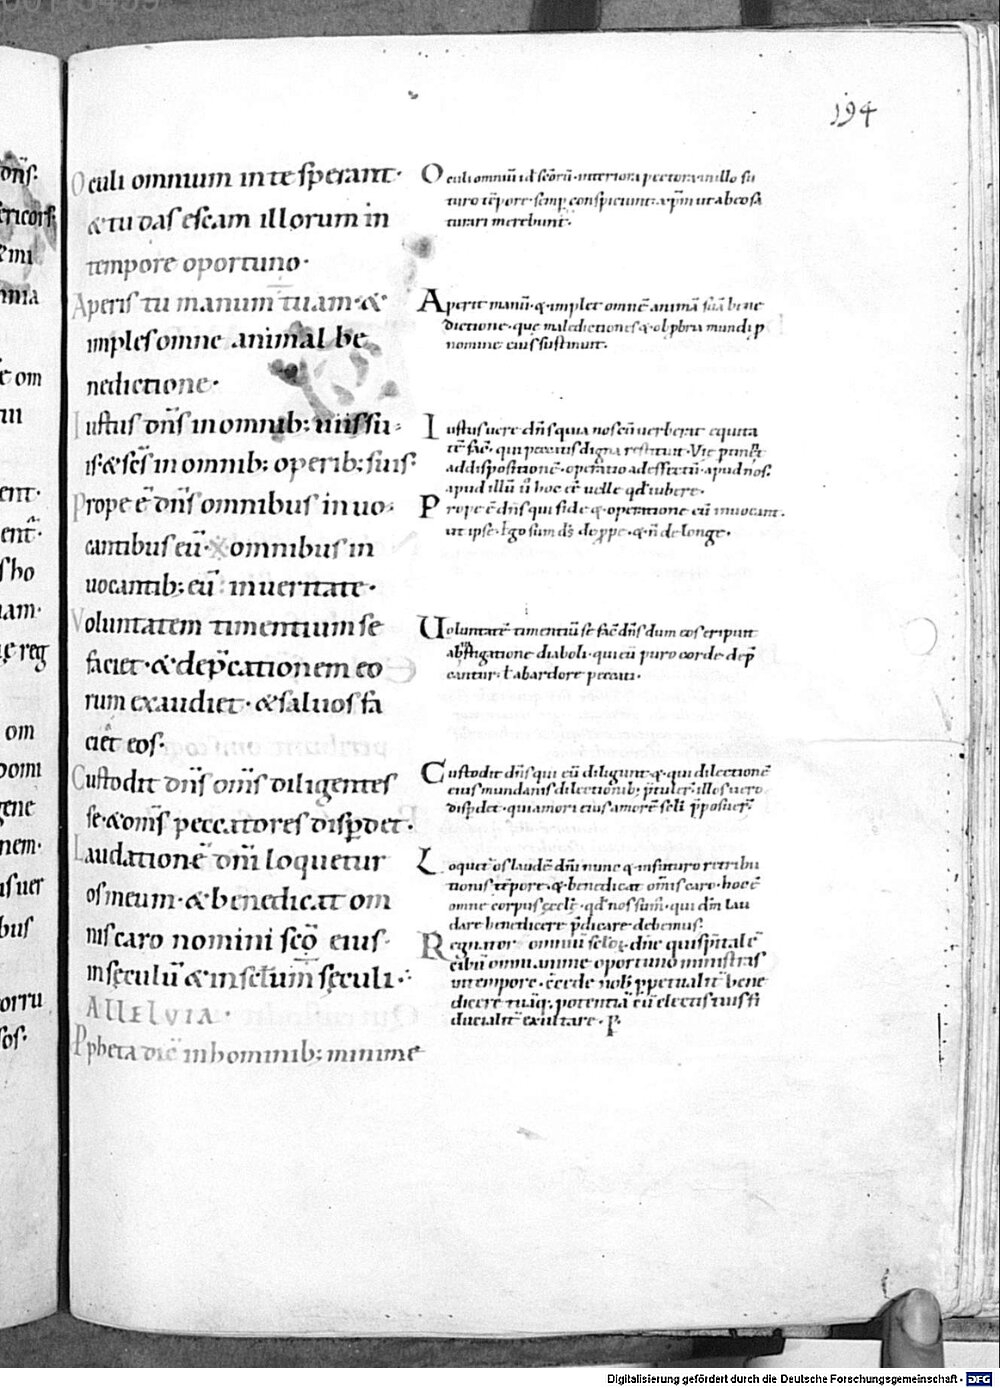 194
Oculi omnium in te sperant·
& tu das escam illorum in
tempore oportuno·
Aperis tu manum tuam· &
imples omne animal be
nedictione·
Iustus dn̄s in omnib; uiis su
is· & sc̄s in omnib; operib; suis·
Prope ē dn̄s omnibus inuo
cantibus eū· omnibus in
uocantib; eū in ueritate·
Voluntatem timentium se
faciet· & dep̄cationem eo
rum exaudiet· & saluos fa
ciet eos·
Custodit dn̄s om̄s diligentes
se· & om̄s peccatores disp̱det·
Laudationē dn̄i loquetur
os meum· & benedicat om
nis caro nomini sc̄o eius·
in sęculū & in sc̄lum sęculi·
ALLELVIA·
P̱pheta dic̄ in hominib; minime
Oculi omniū id ē sc̄orū· interiora pectora in illo fu
turo tēpore semp̱ conspiciunt
turari merebunt·
Aperit manū· & implet omnē animā suā bene
dictione· que maledictiones & obp̱bria mundi p̱
nomine eius sustinuit·
Iustus uere dn̄s quia nos cū uerberit equita
tē fac̄· qui peccatis digna restituit·
ad dispositionē· operatio ad effectū· apud nos·
apud illū ū hoc ē uelle qd̄ iubere·
Prope ē dn̄s qui fide & operatione eū inuocant·
ut ipse· ego sum ds̄ de p̱pe· & n̄ de longe·
Uoluntatē timentiū se fac̄ dn̄s dum eos eripuit
diaboli· qui eū puro corde dep̄
cantur· ł ab ardore peccati·
Custodit dn̄s qui eū diligunt· & qui dilectionē
eius mundanis dilectionib; p̄tuler̄· illos uero
disp̱det· qui amori eius amorē sc̄li p̄posuer̄·
Loquet̄ os laudē dn̄i nunc & in futuro retribu
tionis tēpore· & benedicat om̄is caro· hoc ē
omne corpus ęccłę· qd̄ nos sum̄· qui dn̄m lau
dare benedicere p̄dicare debemus·
Regnator omniū dn̄e qui sp̄italē
cibū omni anime oportuno ministras
in tempore· cēde nob̄ p̱petualit̄ bene
dicere tuāq; potentiā cū electis tuis fi
ducialit̄ exultare· P̱·
Digitalisierung gefördert durch die Deutsche Forschungsgemeinschaft · DFG